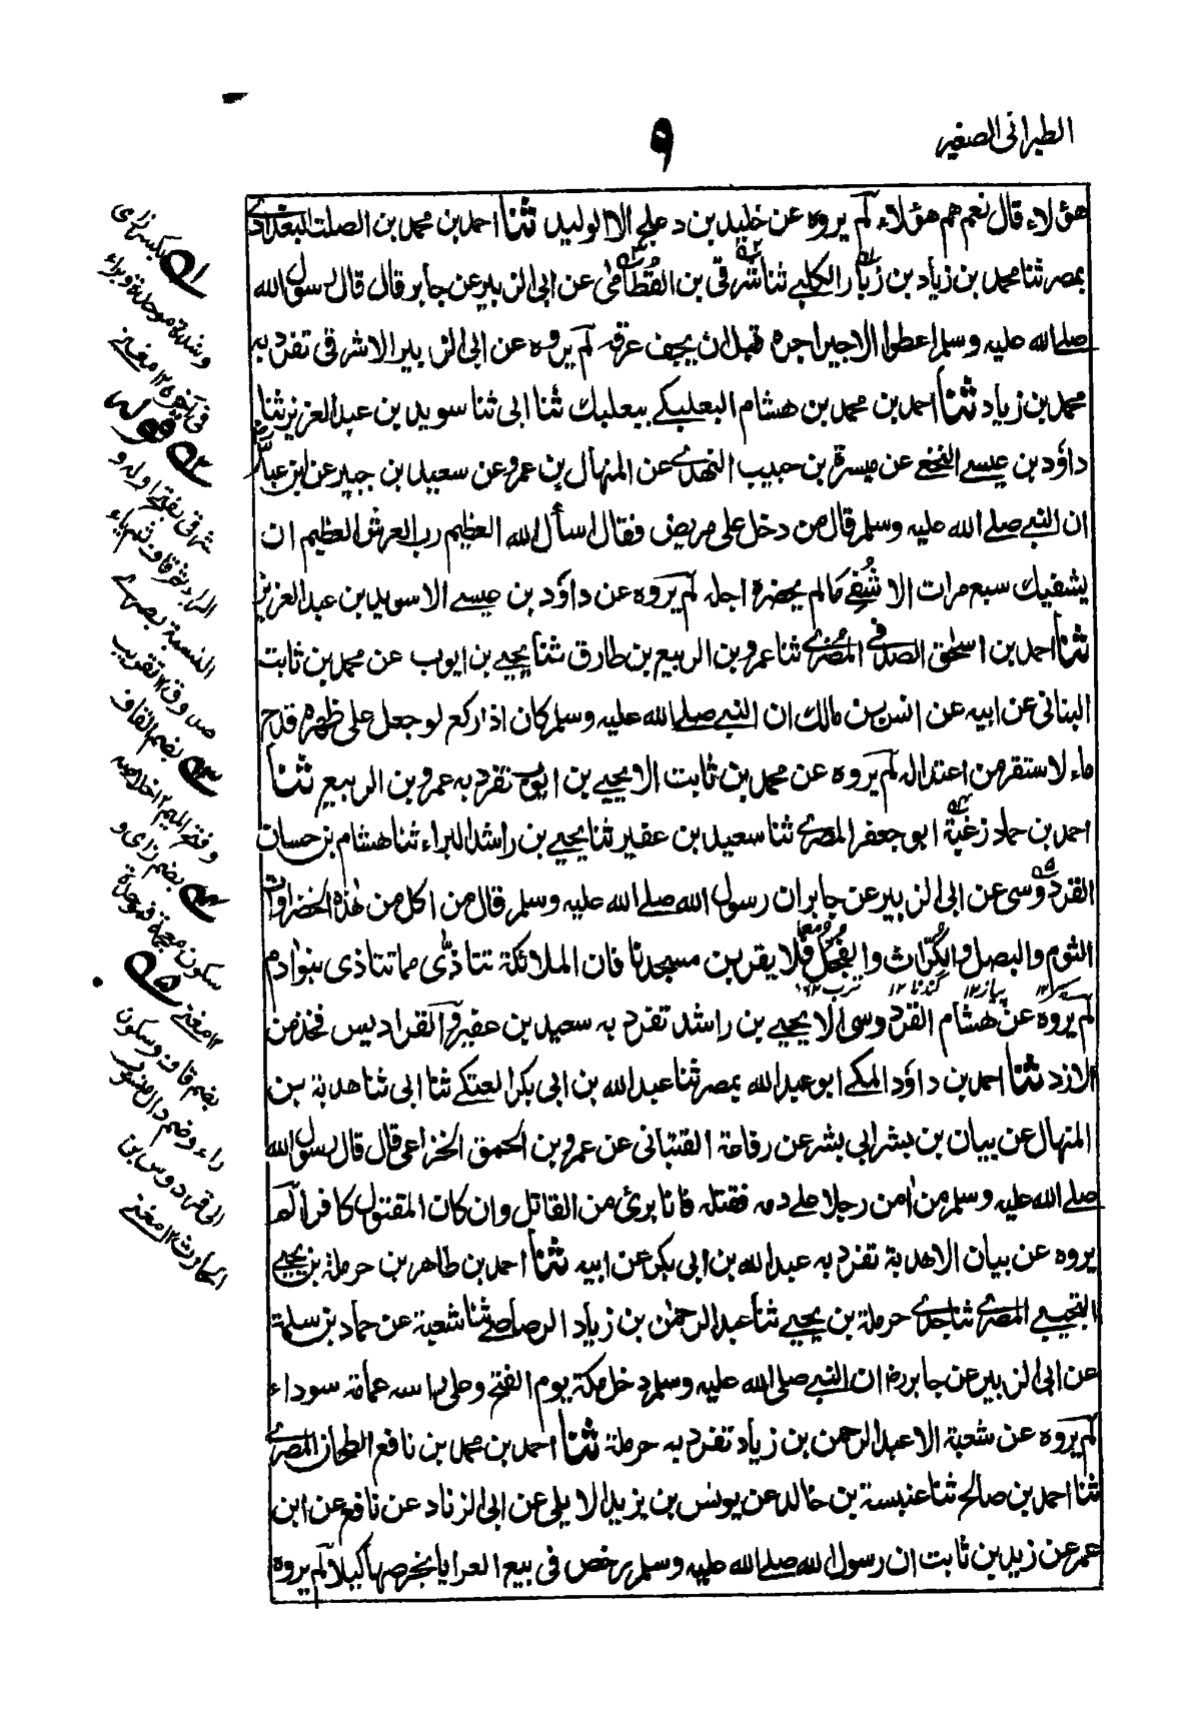 الطبرانی الصغیر
۹
هؤلاء قال نعم هم هؤلاء لم یروه عن خلید بن دعلج الا الولید ثنا احمد بن محمد بن الصلت البغدادی
بمصر ثنا محمد بن زیاد بن زبار الکلبے ثنا شرقی بن القطامی عن ابی الزبیر عن جابر قال قال رسول الله
صلے الله علیه وسلم اعطوا الاجیر اجره قبل ان یجف عرقه لم یروه عن ابی الزبیر الا شرقی تفرد به
محمد بن زیاد ثنا احمد بن محمد بن هشام البعلبکے ببعلبك ثنا ابی ثنا سوید بن عبد العزیز ثنا
داؤد بن عیسے النخعے عن میسرة بن حبیب النهدے عن المنهال بن عمرو عن سعید بن جبیر عن ابن عباس
ان النبے صلے الله علیه وسلم قال من دخل علی مریض فقال اسأل الله العظیم رب العرش العظیم ان
یشفیك سبع مرات الا شُفِے مالم یحضره اجله لم یروه عن داؤد بن عیسے الا سوید بن عبد العزیز
ثنا احمد بن اسحٰق الصدفے المصرے ثنا عمرو بن الربیع بن طارق ثنا یحیے بن ایوب عن محمد بن ثابت
البنانی عن ابیه عن انس بن مالك ان النبے صلے الله علیه وسلم کان اذا رکع لو جعل علی ظهره قدح
ماء لاستقر من اعتداله لم یروه عن محمد بن ثابت الا یحیے بن ایوب تفرد به عمرو بن الربیع ثنا
احمد بن حماد زغبة ابو جعفر المصرے ثنا سعید بن عفیر ثنا یحیے بن راشد البراء ثنا هشام بن حسان
القردوسی عن ابی الزبیر عن جابر ان رسول الله صلے الله علیه وسلم قال من اکل من هٰذه الخضراوات
الثوم والبصل والکُرّاث والفجل فلا یقربن مسجدنا فان الملائکة تتاذّٰی مما تتاذی بنو ادم
پیاز ۱۲ گندنا ۱۲ ترب ۱۲
لم یروه عن هشام القردوسی الا یحیے بن راشد تفرد به سعید بن عفیر والقرادیس فخذ من
الازد ثنا احمد بن داؤد المکے ابو عبد الله بمصر ثنا عبد الله بن ابی بکر العتکے ثنا ابی ثنا هدبة بن
المنهال عن بیان بن بشر ابی بشر عن رفاعة القتبانی عن عمرو بن الحمق الخزاعی قال قال رسول الله
صلے الله علیه وسلم من اٰمن رجلا علے دمه فقتله فانا بریٔ من القاتل وان کان المقتول کافرا لم
یروه عن بیان الا هدبة تفرد به عبد الله بن ابی بکر عن ابیه ثنا احمد بن طاهر بن حرملة بن یحیے
التجیبے المصرے ثنا جدے حرملة بن یحیے ثنا عبد الرحمٰن بن زیاد الرصاصے ثنا شعبة عن حماد بن سلمة
عن ابی الزبیر عن جابر رض ان النبے صلی الله علیه وسلم دخل مکة یوم الفتح وعلی راسه عمامة سوداء
لم یروه عن شعبة الا عبد الرحمن بن زیاد تفرد به حرملة ثنا احمد بن محمد بن نافع الطحان المصرے
ثنا احمد بن صالح ثنا عنبسة بن خالد عن یونس بن یزید الایلی عن ابی الزناد عن نافع عن ابن
عمر عن زید بن ثابت ان رسول الله صلے الله علیه وسلم رخص فی بیع العرایا بخرصها کیلا لم یروه
۱ بکسر زای
وشدة موحدة وبراء
فی آخره ۱۲ مغنے
۲ قوله
شرقی بفتح اوله و
الراء ثم قاف ثم یاء
النسبة بصرے
صدوق ۱۲ تقریب
۳ بضم القاف
وفتح المیم ۱۲ خلاصه
۴ بضم زای و
سکون معجمة فموحدة
۱۲ مغنے ۵
بضم قاف وسکون
راء وضم دال منسوب
الی قردوس بن
الحارث ۱۲ مغنے